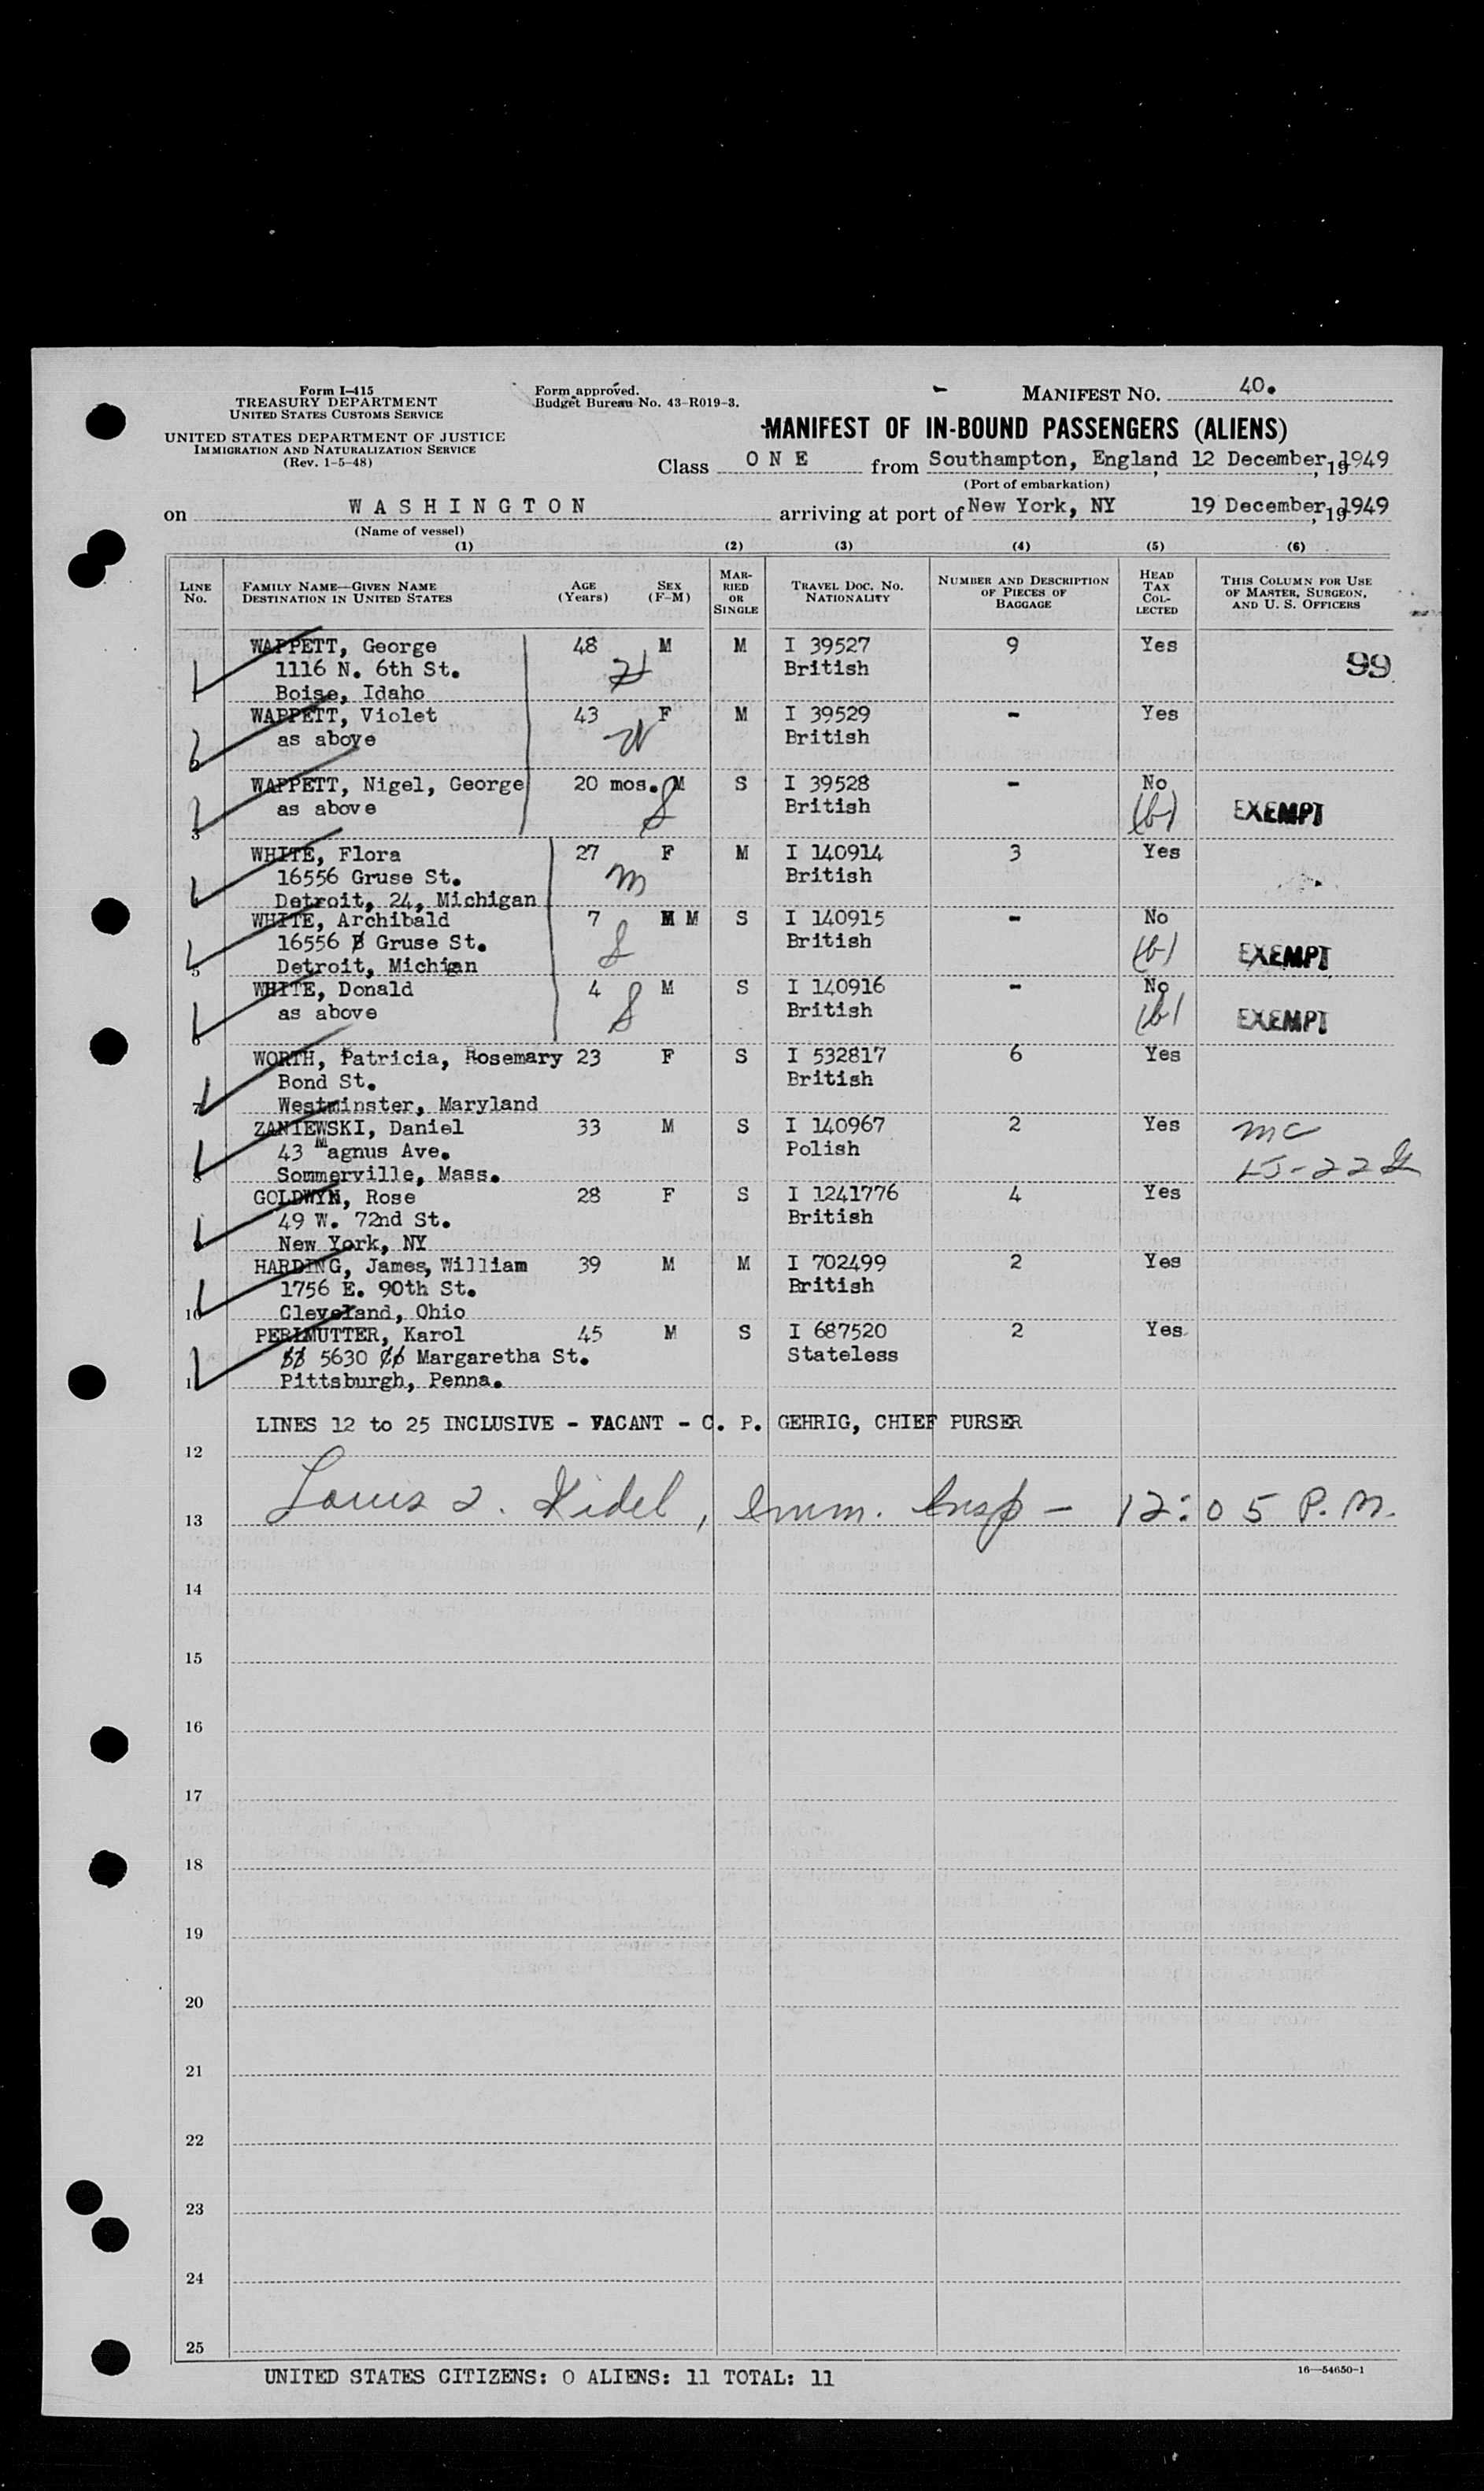 Form I-415
TREASURY DEPARTMENT
UNITED STATES CUSTOMS SERVICE
UNITED STATES DEPARTMENT OF JUSTICE
IMMIGRATION AND NATURALIZATION SERVICE
(Rev. 1-5-48)
Form approved.
Budget Bureau No. 43-R019-3.
MANIFEST NO. 40.
MANIFEST OF IN-BOUND PASSENGERS (ALIENS)
Class O N E from Southampton, England 12 December, 1949
(Port of embarkation)
on W A S H I N G T O N arriving at port of New York, NY 19 December, 1949
(Name of vessel)
(1) (2) (3) (4) (5) (6)
LINE No. FAMILY NAME—GIVEN NAME DESTINATION IN UNITED STATES AGE (Years) SEX (F-M) MARRIED OR SINGLE TRAVEL DOC. NO. NATIONALITY NUMBER AND DESCRIPTION OF PIECES OF BAGGAGE HEAD TAX COLLECTED THIS COLUMN FOR USE OF MASTER, SURGEON, AND U. S. OFFICERS
WAPPETT, George 48 M M I 39527 9 Yes
1116 N. 6th St. British 99
Boise, Idaho
WAPPETT, Violet 43 F M I 39529 - Yes
as above British
WAPPETT, Nigel, George 20 mos. M S I 39528 - No
3 as above British (b) EXEMPT
WHITE, Flora 27 F M I 140914 3 Yes
16556 Gruse St. m British
Detroit, 24, Michigan
WHITE, Archibald 7 M M S I 140915 - No
16556 B Gruse St. British (b) EXEMPT
5 Detroit, Michigan
WHITE, Donald 4 M S I 140916 - No
as above British (b) EXEMPT
6
WORTH, Patricia, Rosemary 23 F S I 532817 6 Yes
Bond St. British
7 Westminster, Maryland
ZANIEWSKI, Daniel 33 M S I 140967 2 Yes mc
43 Magnus Ave. Polish
8 Sommerville, Mass.
GOLDWYN, Rose 28 F S I 1241776 4 Yes
49 W. 72nd St. British
New York, NY
HARDING, James, William 39 M M I 702499 2 Yes
1756 E. 90th St. British
10 Cleveland, Ohio
PERLMUTTER, Karol 45 M S I 687520 2 Yes
5630 Margaretha St. Stateless
11 Pittsburgh, Penna.
LINES 12 to 25 INCLUSIVE - VACANT - C. P. GEHRIG, CHIEF PURSER
12
13 Louis J. Kidel, Imm. Insp - 12:05 P.M.
14
15
16
17
18
19
20
21
22
23
24
25
UNITED STATES CITIZENS: 0 ALIENS: 11 TOTAL: 11
16—54650-1